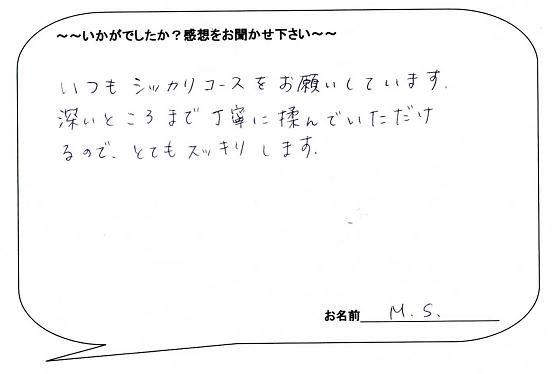 ～～いかがでしたか？感想をお聞かせ下さい～～
いつもシッカリコースをお願いしています.
深いところまで丁寧に揉んでいただけ
るので、とてもスッキリします.
お名前 M.S.